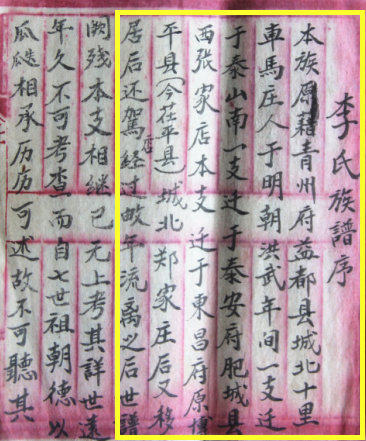 李氏族譜序
本族原籍青州府益都县城北十里
車馬庄人于明朝洪武年间一支迁
于泰山南一支迁于泰安府肥城县
西张家店本支迁于東昌府原博
平县(今茌平县)城北郑家庄后又移
居后还駕店経过数年流离之后世譜
阙残本支相継已无上考其詳世遠
年久不可考查而自七世祖朝德以
瓜瓞相承历历可述故不可聽其